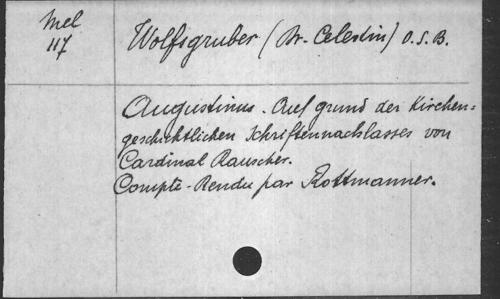 Mel
117
Wolfsgruber (Dr. Celestin) O.S.B.
Augustinus. Auf grund der Kirchen=
geschichtlichen Schriftennachlasses von
Cardinal Rauscher.
Compte-Rendu par Rottmanner.